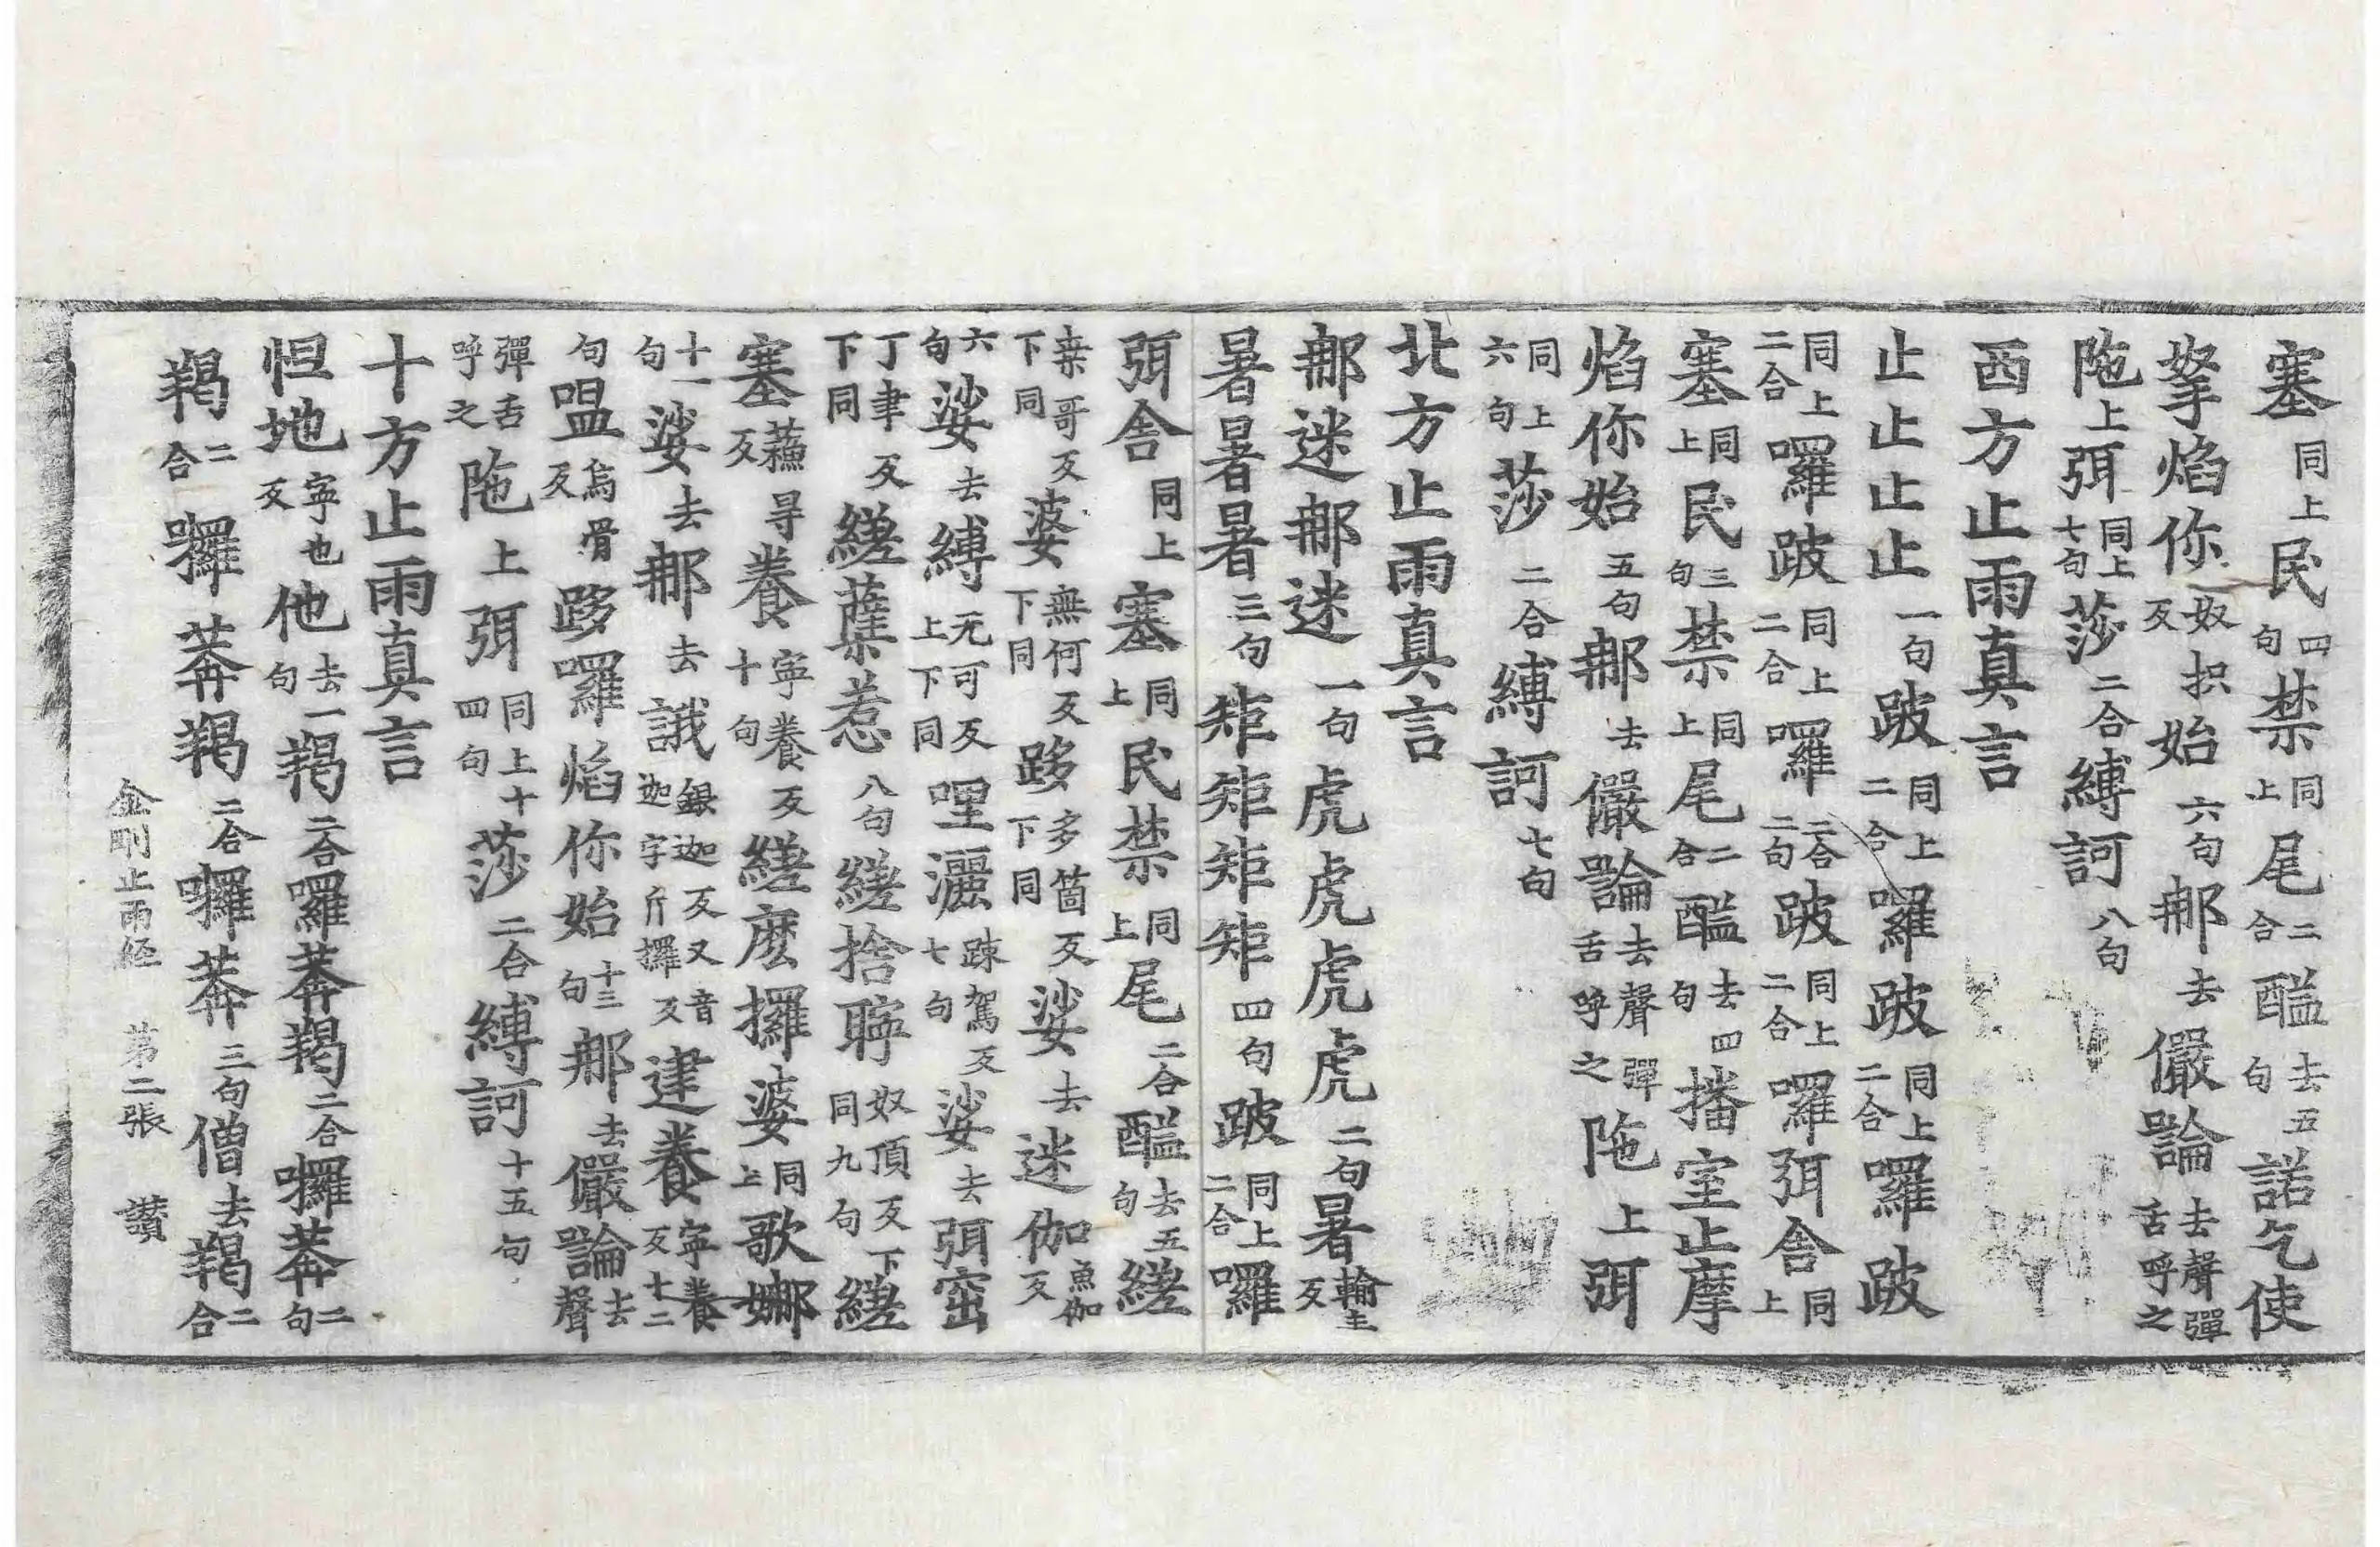 塞同上民四句禁同上尾二合醯去五句諾乞使
拏焰你奴抧反始六句那去儼論去聲彈舌呼之
陁上弭同上七句莎二合縛訶八句
西方止雨真言
止止止止一句跛同上二合囉跛同上二合囉跛
同上二合囉跛同上二合囉二合二句跛同上二合囉弭舍同上
塞同上民三句禁同上尾二合醯去四句播室止摩
焰你始五句那去儼論去聲彈舌呼之陁上弭
同上六句莎二合縛訶七句
北方止雨真言
那迷那迷一句虎虎虎虎二句暑輸主反
暑暑暑三句矩矩矩矩四句跛同上二合囉
弭舍同上塞同上民禁同上尾二合醯去五句縒
桒哥反下同婆無何反下同跢多箇反下同娑去迷伽魚伽反
六句娑去縛无可反上下同哩灑疎駕反七句娑去弭窋
丁聿反下同縒蘗惹八句縒捨聹奴頂反下同九句縒
塞蘸尋反養寧養反十句縒麼攞婆同上歌娜
十一句娑去那去誐銀迦反又音迦字斤攞反建養寧養反十二
句唱烏骨反跢囉焰你始十三句那去儼論去聲
彈舌呼之陁上弭同上十四句莎二合縛訶十五句
十方止雨真言
怛地寧也反他去一句羯二合囉莾羯二合囉莾二句
羯二合囉莾羯二合囉莾三句僧去羯二合
金剛止雨経 第二張 讃